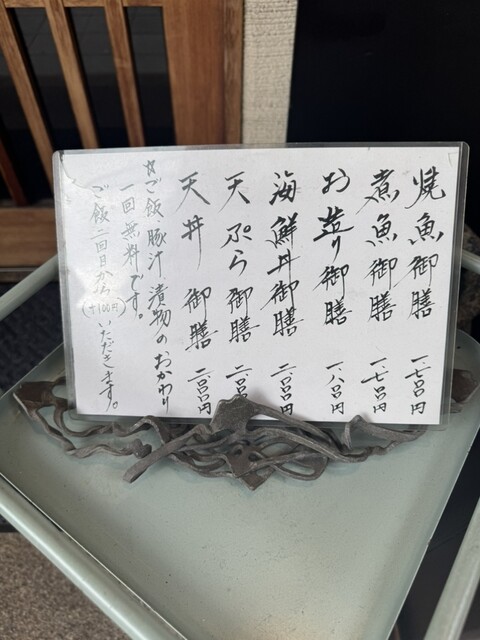 焼魚御膳 一.七〇〇円
煮魚御膳 一.七〇〇円
お造り御膳 一.八〇〇円
海鮮丼御膳 二.〇〇〇円
天ぷら御膳 二.〇〇〇円
天丼 御膳 二.〇〇〇円
☆ご飯 豚汁 漬物のおかわり
一回無料です。
ご飯二回目から(+100円)いただきます。